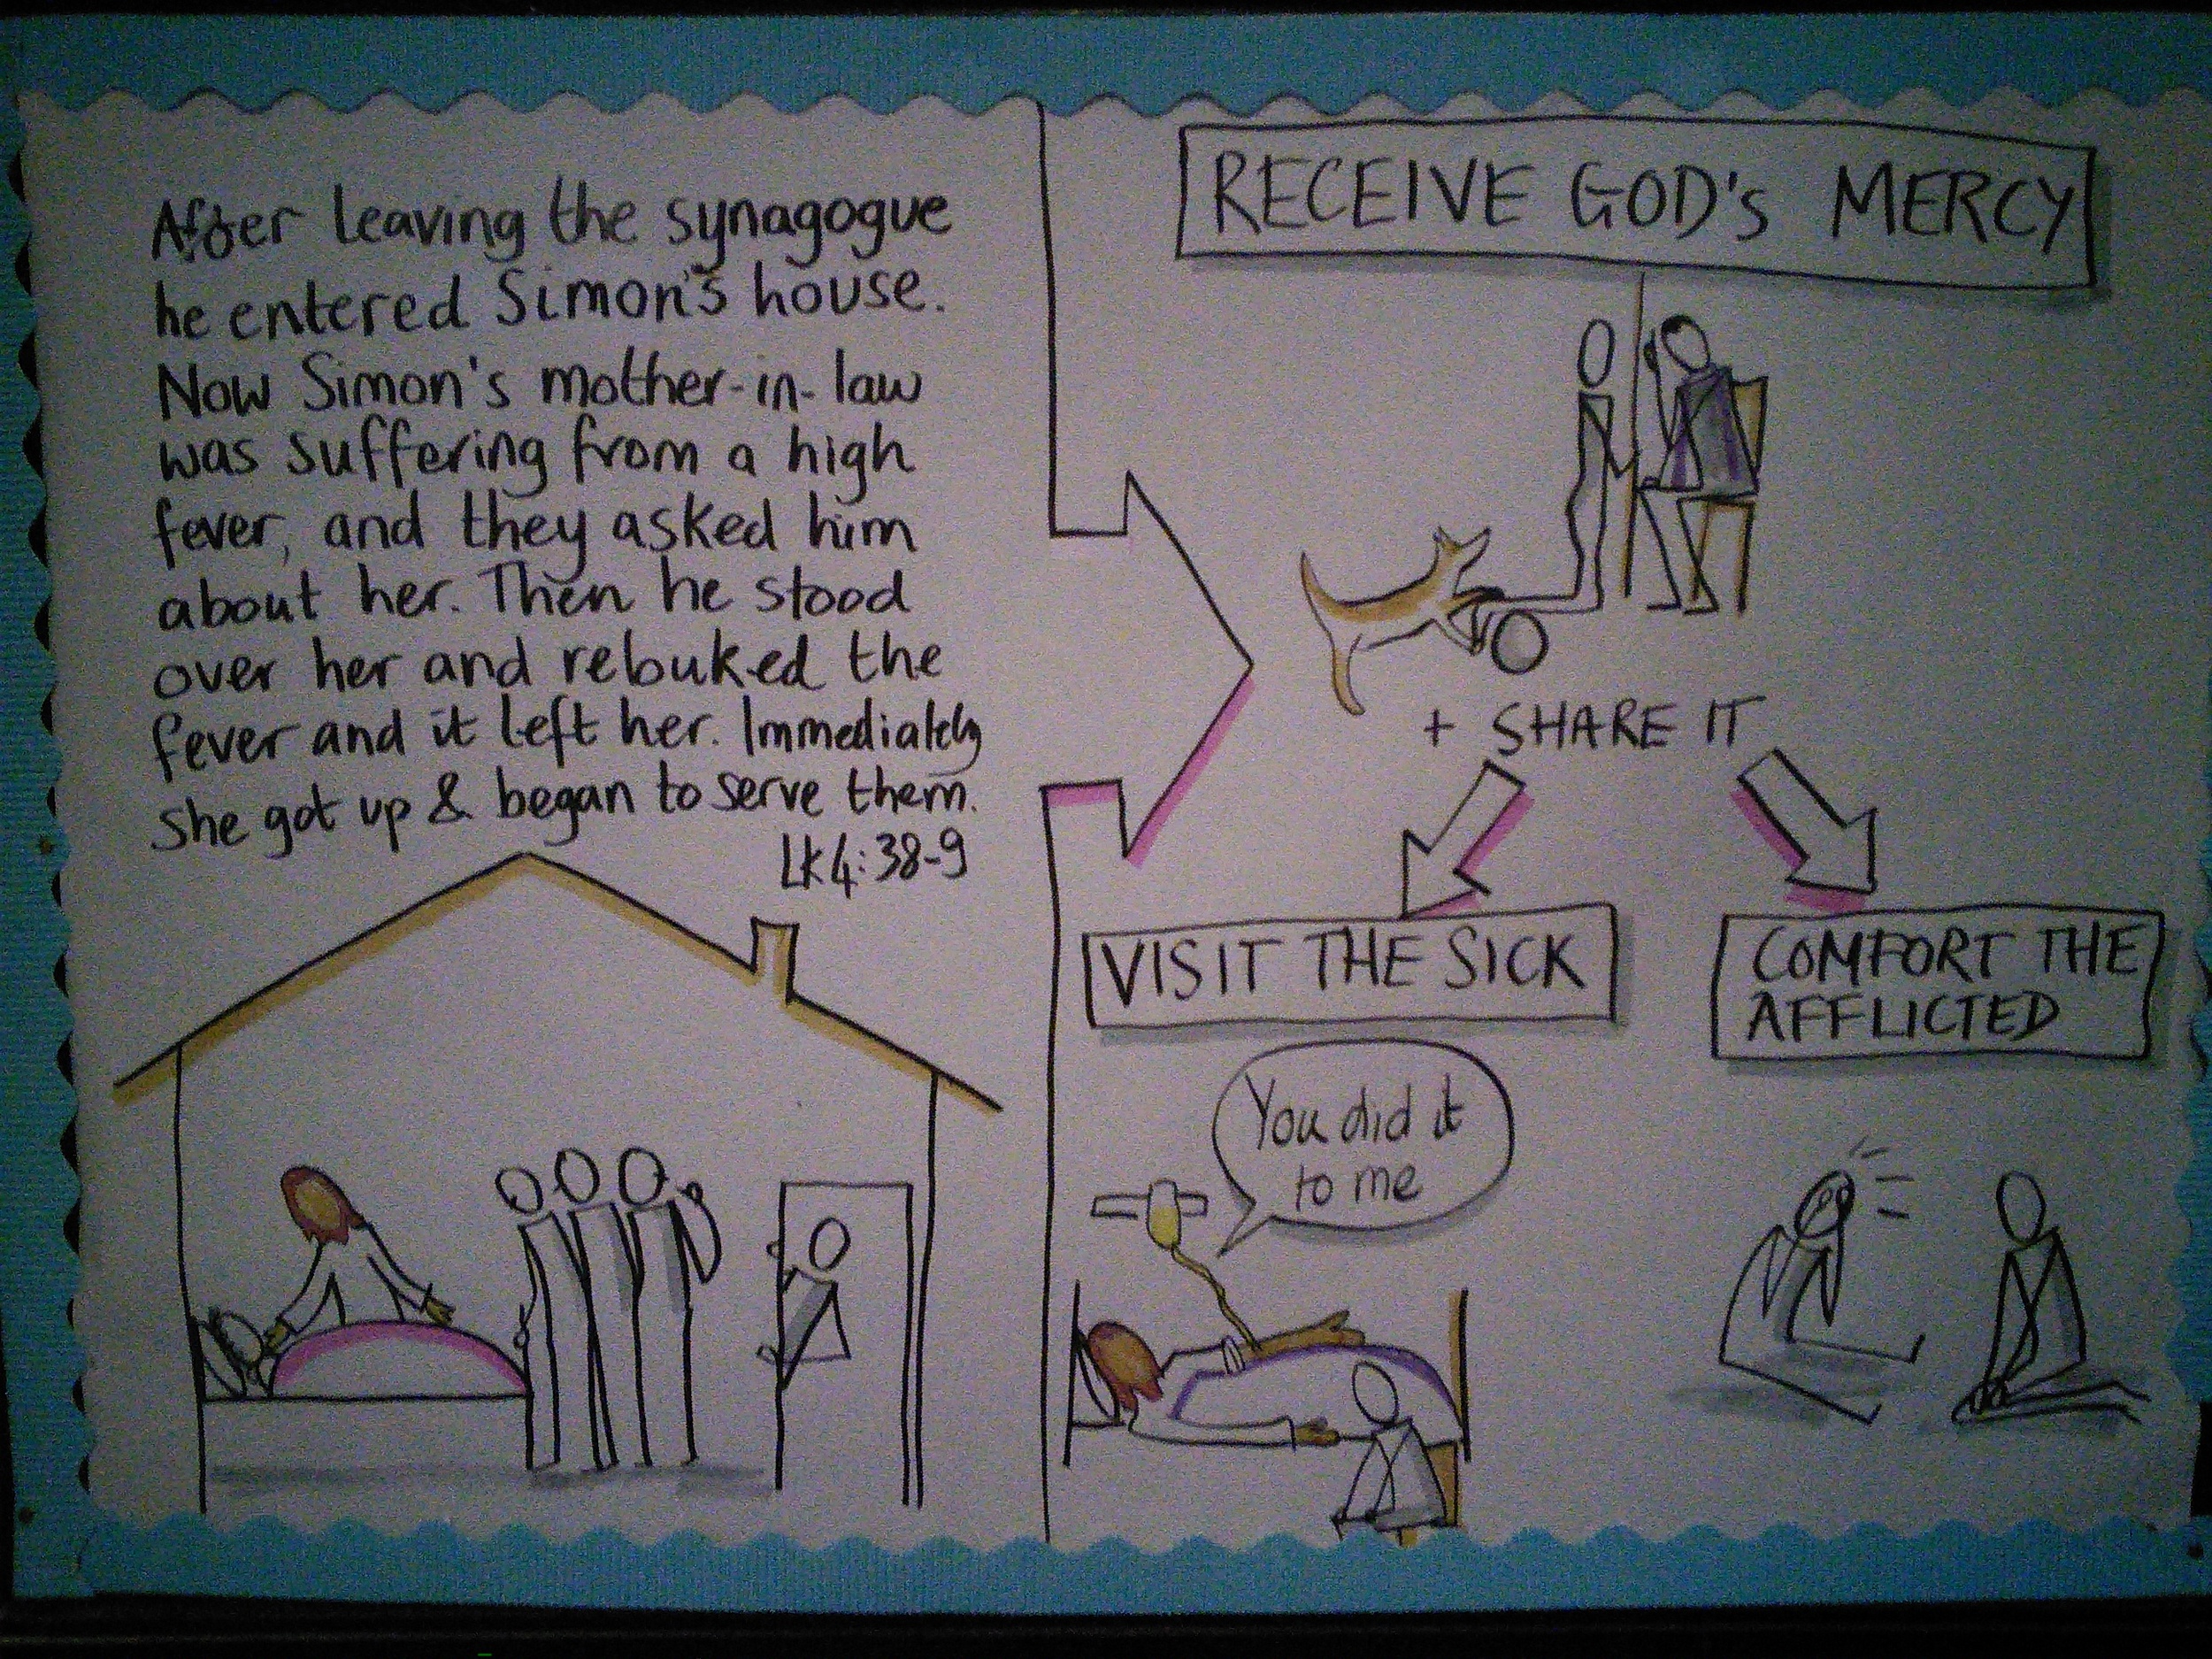 After leaving the synagogue
he entered Simon's house.
Now Simon's mother-in-law
was suffering from a high
fever, and they asked him
about her. Then he stood
over her and rebuked the
fever and it left her. Immediately
she got up & began to serve them.
Lk4:38-9
RECEIVE GOD's MERCY
+ SHARE IT
VISIT THE SICK
COMFORT THE
AFFLICTED
You did it
to me